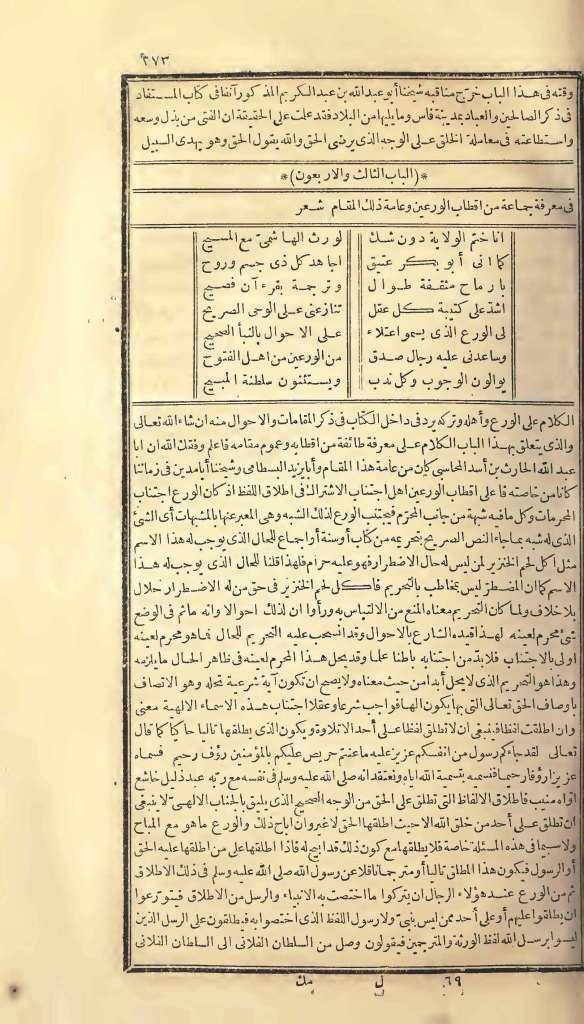 ٢٧٣
وقته فى هذا الباب خرّج مناقبه شيخنا أبو عبد الله بن عبد الكريم المذكور آنفا فى كتاب المستفاد
فى ذكر الصالحين والعباد بمدينة فاس وما يليها من البلاد فقد علمت على الحقيقة ان الفتى من بذل وسعه
واستطاعته فى معاملة الخلق على الوجه الذى يرضى الحق والله يقول الحق وهو يهدى السبيل
*(الباب الثالث والاربعون)*
فى معرفة جماعة من اقطاب الورعين وعامة ذلك المقام شعر
انا ختم الولاية دون شك لورث الهاشمىّ مع المسيح
كما انى أبو بكر عتيق اجاهد كل ذى جسم وروح
بارماح مثقفة طوال وترجمة بقرءآن فصيح
اشدّ على كتيبة كل عقل تنازعنى على الوحى الصريح
لى الورع الذى يسمو اعتلاء على الاحوال بالنبأ الصحيح
وساعدنى عليه رجال صدق من الورعين من اهل الفتوح
يوالون الوجوب وكل ندب ويستثنون سلطنة المبيح
الكلام على الورع وأهله وتركه يرد فى داخل الكتاب فى ذكر المقامات والاحوال منه ان شاء الله تعالى
والذى يتعلق بهذا الباب الكلام على معرفة طائفة من اقطابه وعموم مقامه فاعلم وفقك الله ان ابا
عبد الله الحارث بن أسد المحاسبى كان من عامة هذا المقام وأبا يزيد البسطامى وشيخنا أبا مدين فى زماننا
كانا من خاصته فاعلى اقطاب الورعين اهل اجتناب الاشتراك فى اطلاق اللفظ اذ كان الورع اجتناب
المحرمات وكل ما فيه شبهة من جانب المحرّم فيجتنب الورع لذلك الشبه وهى المعبر عنها بالمشبهات أى الشئ
الذى له شبه بما جاء النص الصريح بتحريمه من كتاب أو سنة أو اجماع للحال الذى يوجب له هذا الاسم
مثل اكل لحم الخنزير لمن ليس له حال الاضطرار فهو عليه حرام فلهذا قلنا للحال الذى يوجب له هذا
الاسم كما ان المضطرّ ليس بمخاطب بالتحريم فاكل لحم الخنزير فى حق من له الاضطرار حلال
بلا خلاف ولما كان التحريم معناه المنع من الالتباس به ورأوا ان لذلك احوالا وانه ما ثم فى الوضع
شئ محرم لعينه لهذا قيده الشارع بالاحوال وقد انسحب عليه التحريم للحال فما هو محرم لعينه
اولى بالاجتناب فلا بدّ من اجتنابه باطنا علما وقد يحل هذا المحرم لعينه فى ظاهر الحال ما يلزمه
وهذا هو التحريم الذى لا يحل أبدا من حيث معناه ولا يصح ان تكون آية شرعية تحله وهو الاتصاف
باوصاف الحق تعالى التى بها يكون الها فواجب شرعا وعقلا اجتناب هذه الاسماء الالهية معنى
وان اطلقت لفظا فينبغى ان لا تطلق لفظا على أحد الا تلاوة ويكون الذى يطلقها تاليا حاكيا كما قال
تعالى لقد جاءكم رسول من انفسكم عزيز عليه ما عنتم حريص عليكم بالمؤمنين رؤف رحيم فسماه
عزيزا رؤفا رحيما فنسميه بتسمية الله اياه ونعتقد انه صلى الله عليه وسلم فى نفسه مع ربه عبد ذليل خاشع
اوّاه منيب فاطلاق الالفاظ التى تطلق على الحق من الوجه الصحيح الذى يليق بالجناب الالهىّ لا ينبغى
ان تطلق على أحد من خلق الله الا حيث اطلقها الحق لا غير وان اباح ذلك والورع ما هو مع المباح
ولاسيما فى هذه المسئلة خاصة فلا يطلقها مع كون ذلك قد ابيح له فاذا اطلقها على من اطلقها عليه الحق
أو الرسول فيكون هذا المطلق تاليا أو مترجما ناقلا عن رسول الله صلى الله عليه وسلم فى ذلك الاطلاق
ثم من الورع عند هؤلاء الرجال ان يتركوا ما اختصت به الانبياء والرسل من الاطلاق فيتورّعوا
ان يطلقوا عليهم أو على أحد ممن ليس بنبىّ ولا رسول اللفظ الذى اختصوا به فيطلقون على الرسل الذين
ليسوا برسل الله لفظ الورثة والمترجمين فيقولون وصل من السلطان الفلانى الى السلطان الفلانى
٦٩ ل مك